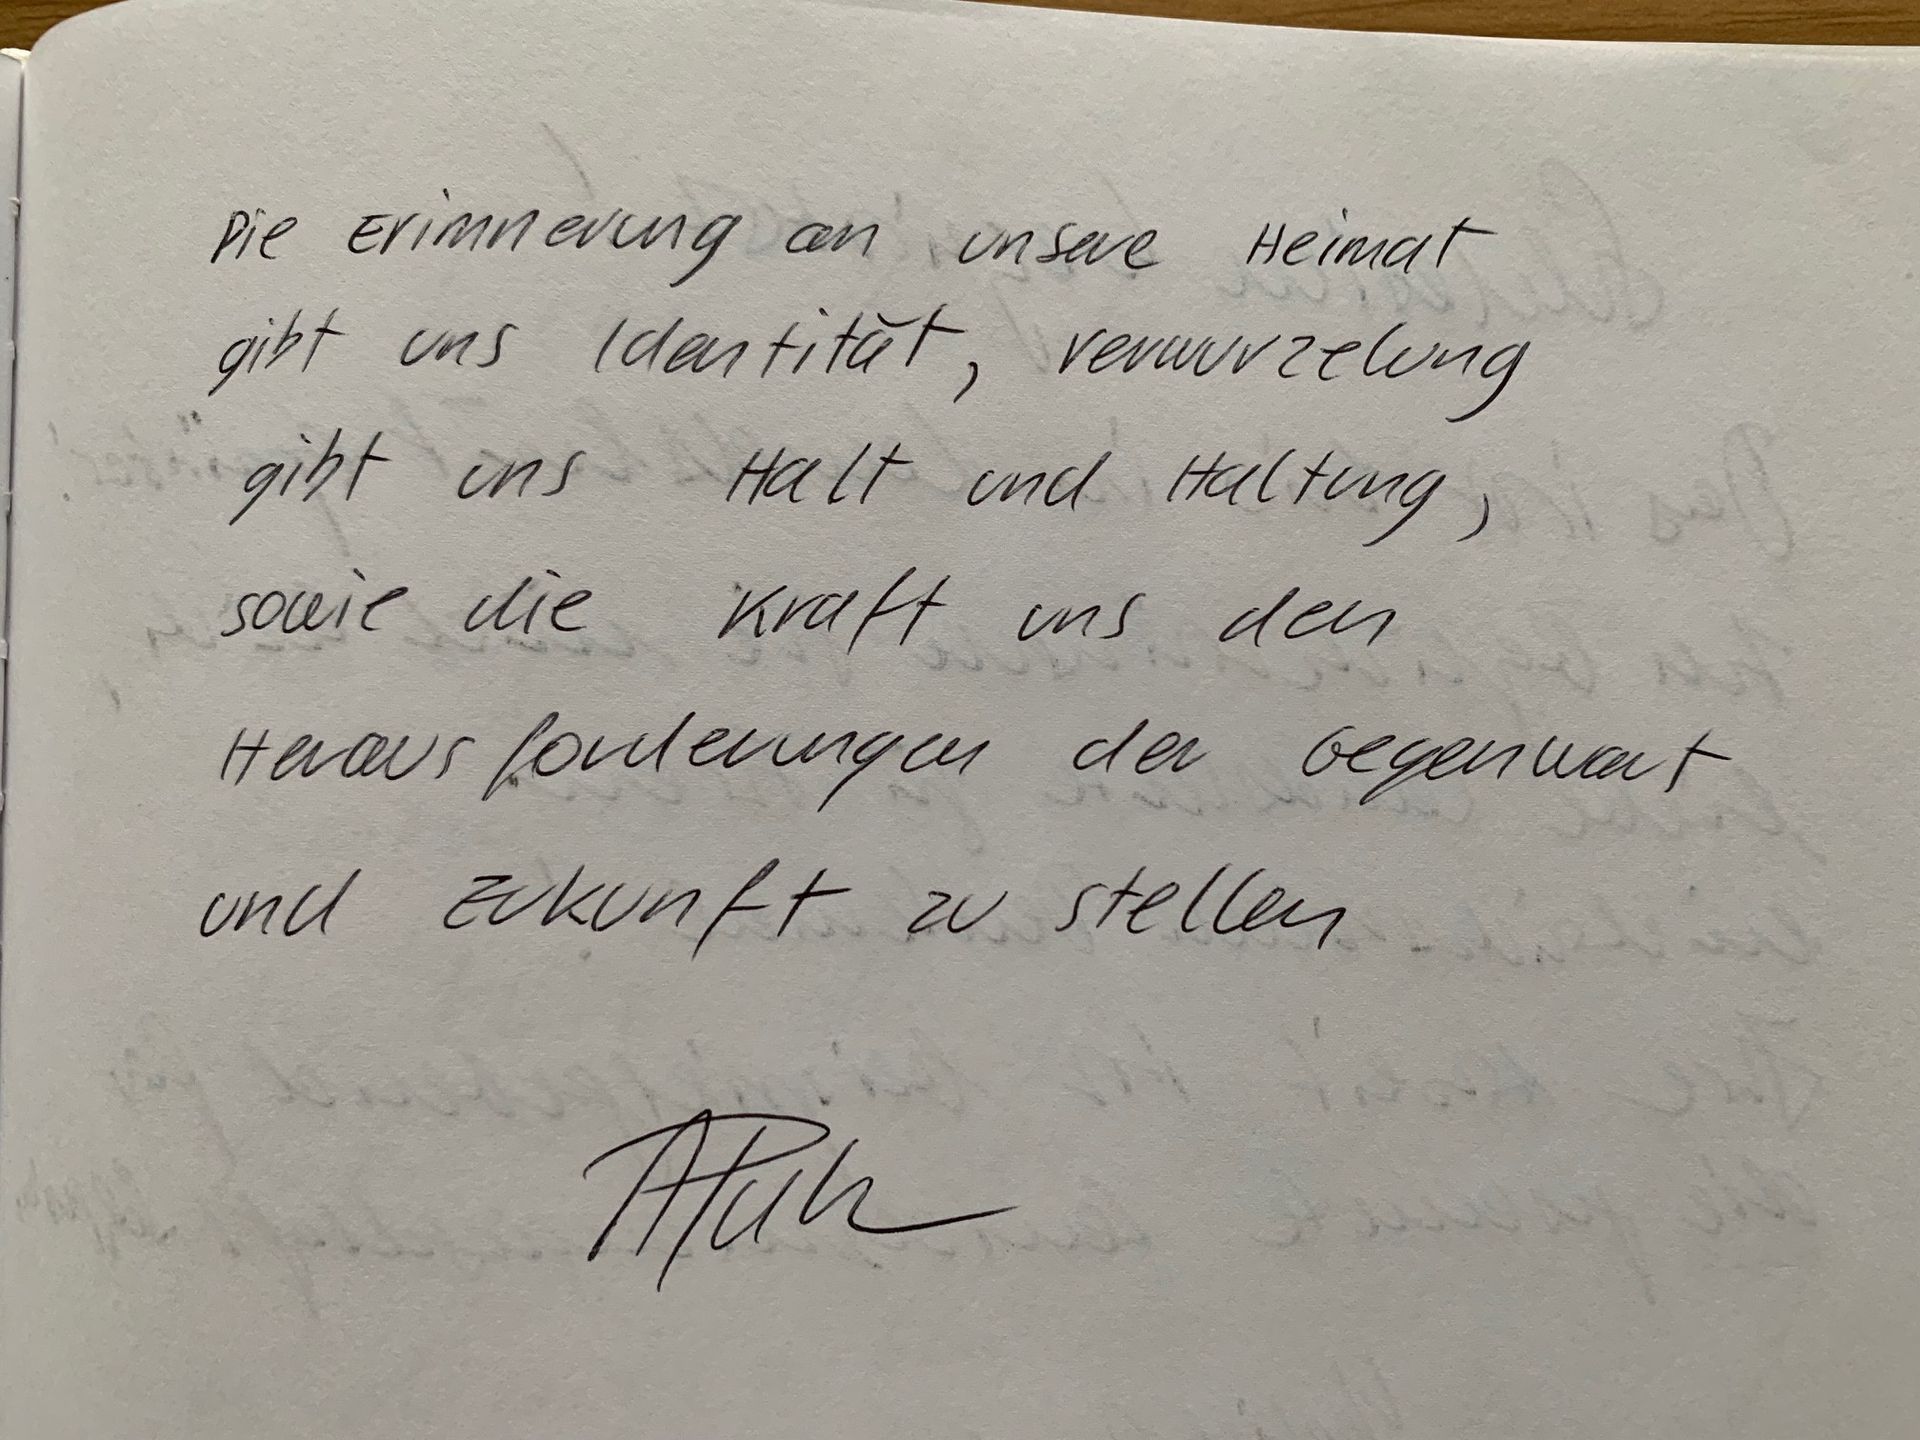 Die Erinnerung an unsere Heimat
gibt uns Identität, Verwurzelung
gibt uns Halt und Haltung,
sowie die Kraft uns den
Herausforderungen der Gegenwart
und Zukunft zu stellen